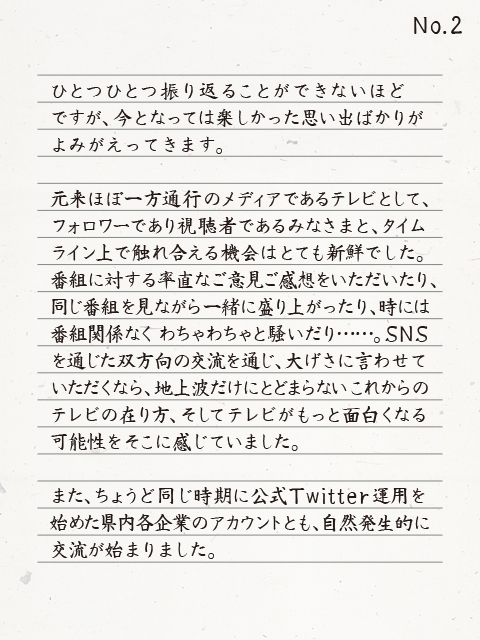 No.2
ひとつひとつ振り返ることができないほど
ですが、今となっては楽しかった思い出ばかりが
よみがえってきます。
元来ほぼ一方通行のメディアであるテレビとして、
フォロワーであり視聴者であるみなさまと、タイム
ライン上で触れ合える機会はとても新鮮でした。
番組に対する率直なご意見ご感想をいただいたり、
同じ番組を見ながら一緒に盛り上がったり、時には
番組関係なくわちゃわちゃと騒いだり……。SNS
を通じた双方向の交流を通じ、大げさに言わせて
いただくなら、地上波だけにとどまらないこれからの
テレビの在り方、そしてテレビがもっと面白くなる
可能性をそこに感じていました。
また、ちょうど同じ時期に公式Twitter運用を
始めた県内各企業のアカウントとも、自然発生的に
交流が始まりました。